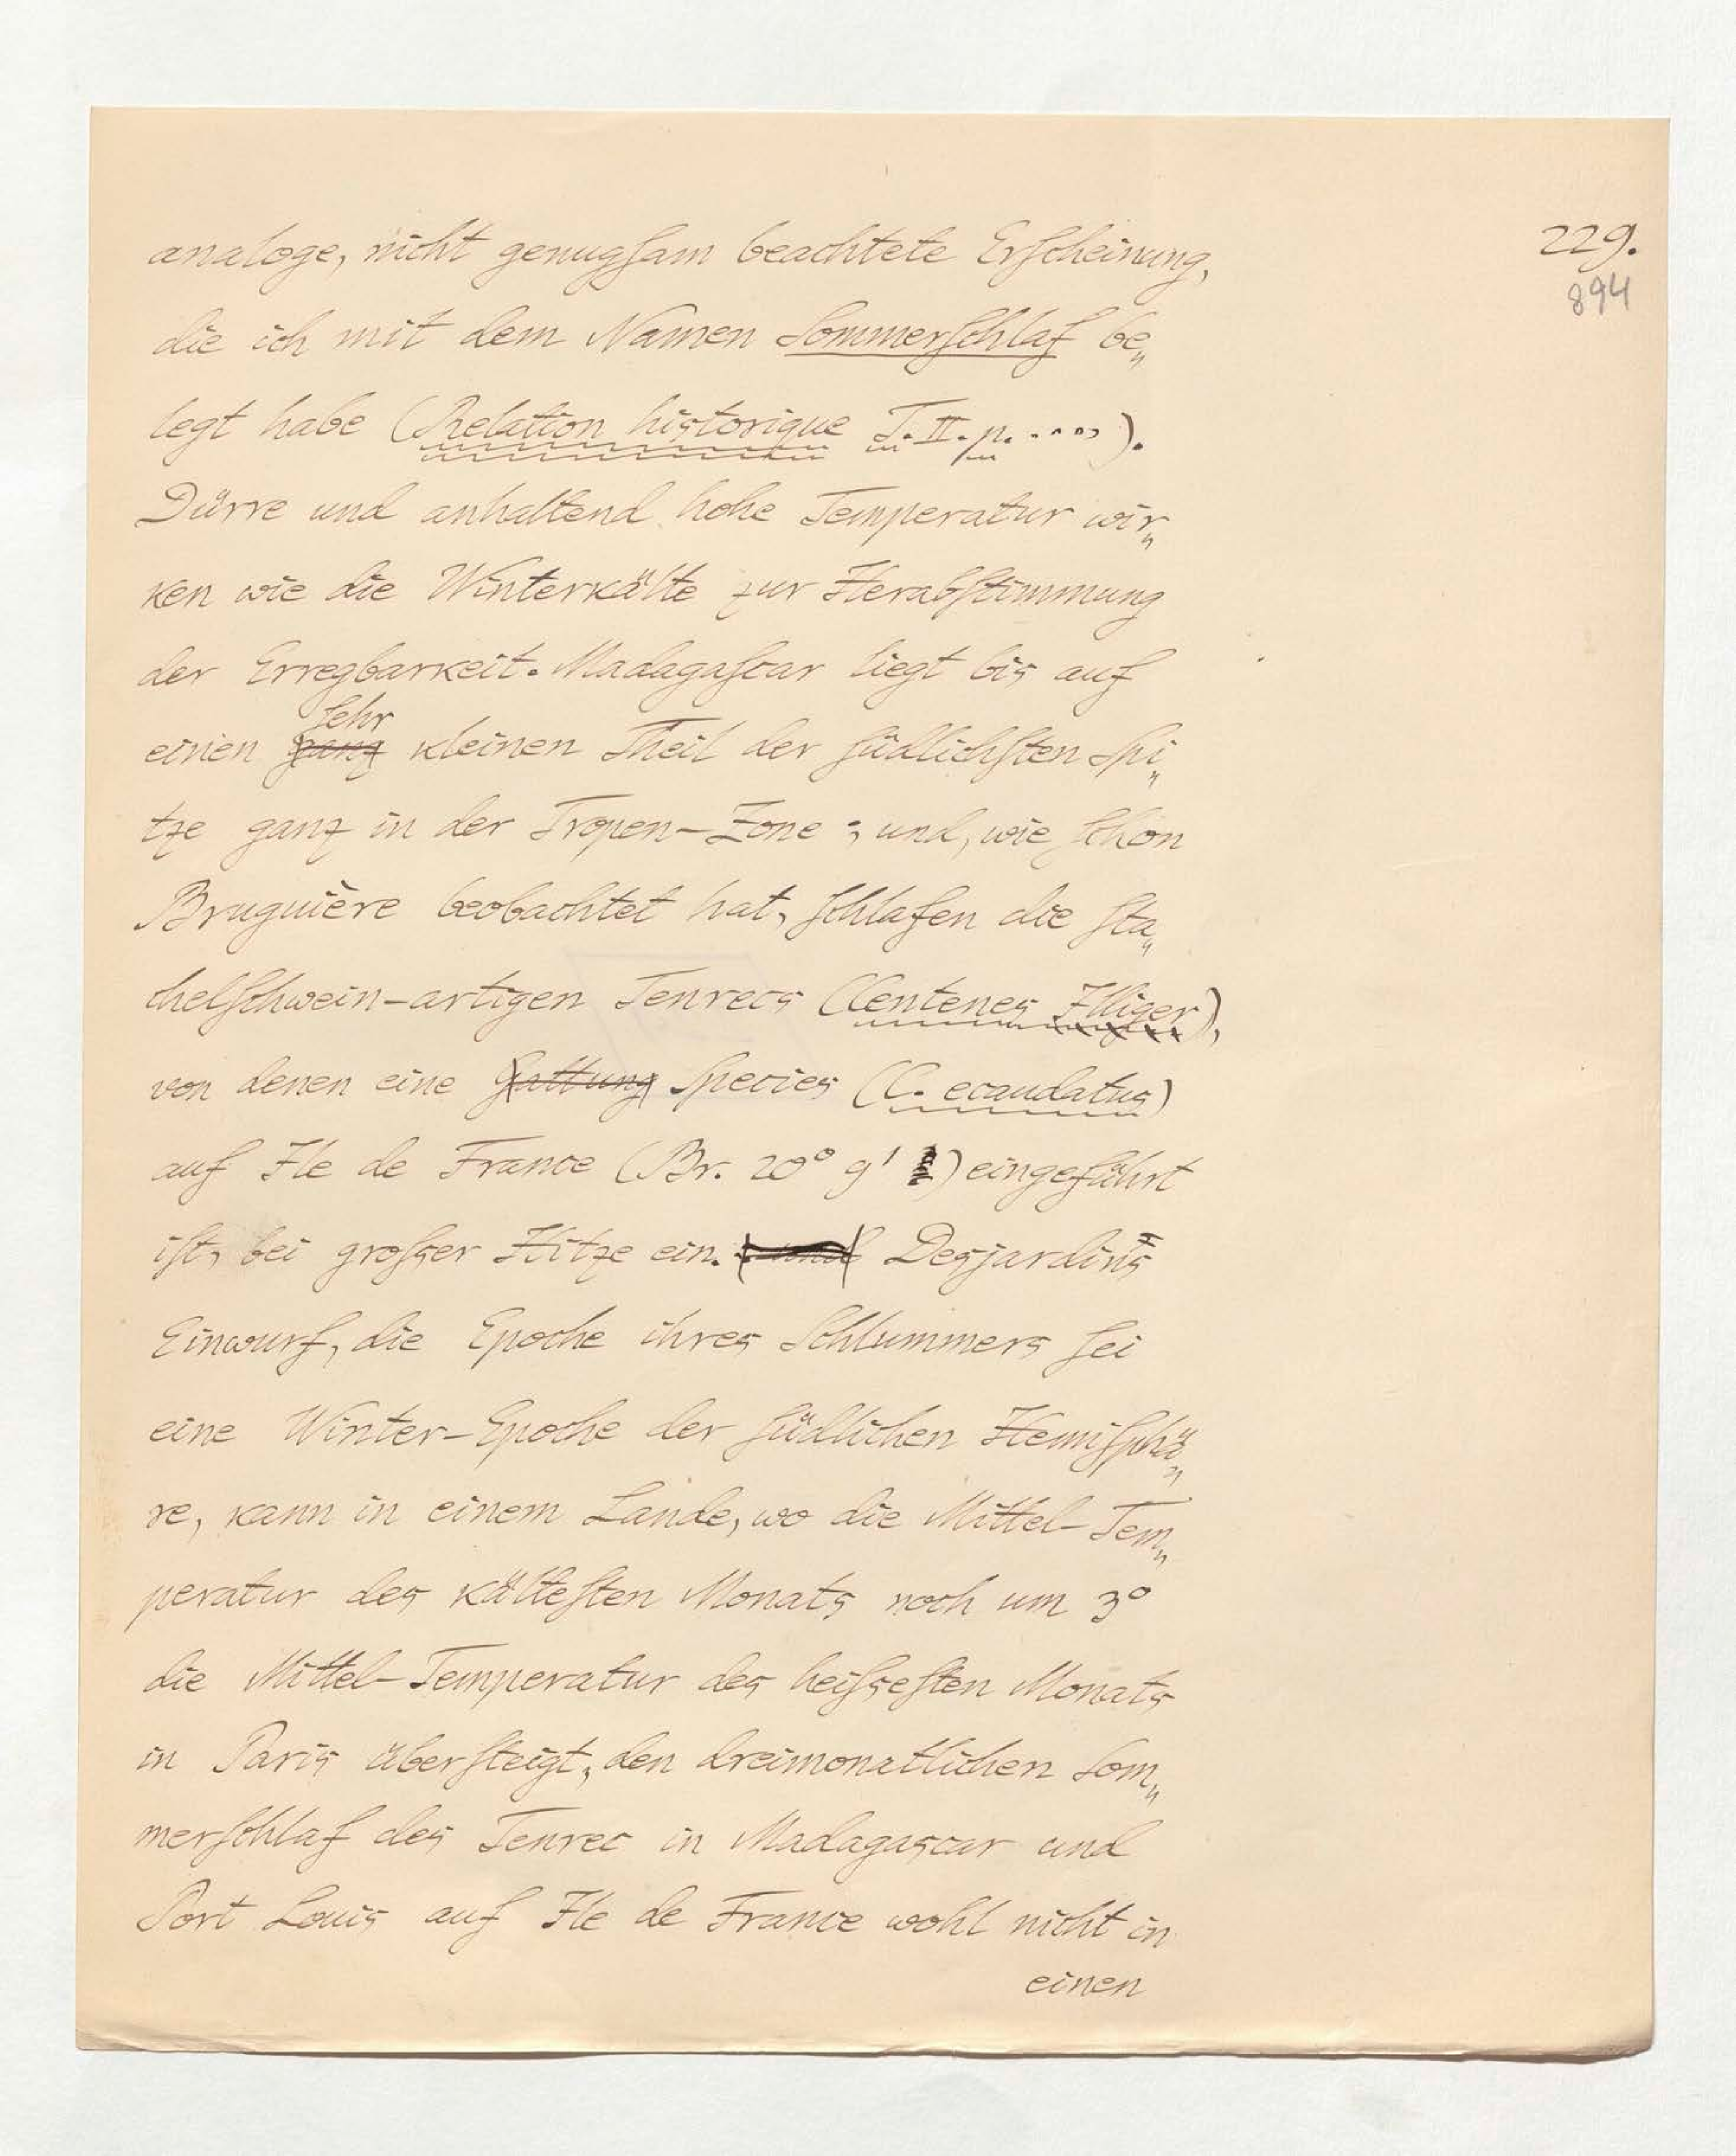 229.
894
analoge, nicht genugſam beachtete Erſcheinung,
die ich mit dem Namen Sommerſchlaf be„
legt habe (Relation historique T. II. p. ....).
Dürre und anhaltend hohe Temperatur wir„
ken wie die Winterkälte zur Herabſtimmung
der Erregbarkeit. Madagaſcar liegt bis auf
ſehr
einen ganz kleinen Theil der ſüdlichſten Spi„
tze ganz in der Tropen-Zone; und, wie ſchon
Bruguière beobachtet hat, ſchlafen die ſta„
chelſchwein-artigen Tenrecs (Centenes Illiger),
von denen eine Gattung Species (C. ecaudatus)
auf Ile de France (Br. 20° 9' ) eingeführt
iſt, bei groſser Hitze ein. und Desjardins
Einwurf, die Epoche ihres Schlummers ſei
eine Winter-Epoche der ſüdlichen Hemiſphä„
re, kann in einem Lande, wo die Mittel-Tem„
peratur des kälteſten Monats noch um 3°
die Mittel-Temperatur des heiſseſten Monats
in Paris überſteigt, den dreimonatlichen Som„
merſchlaf des Tenrec in Madagascar und
Port Louis auf Ile de France wohl nicht in
einen